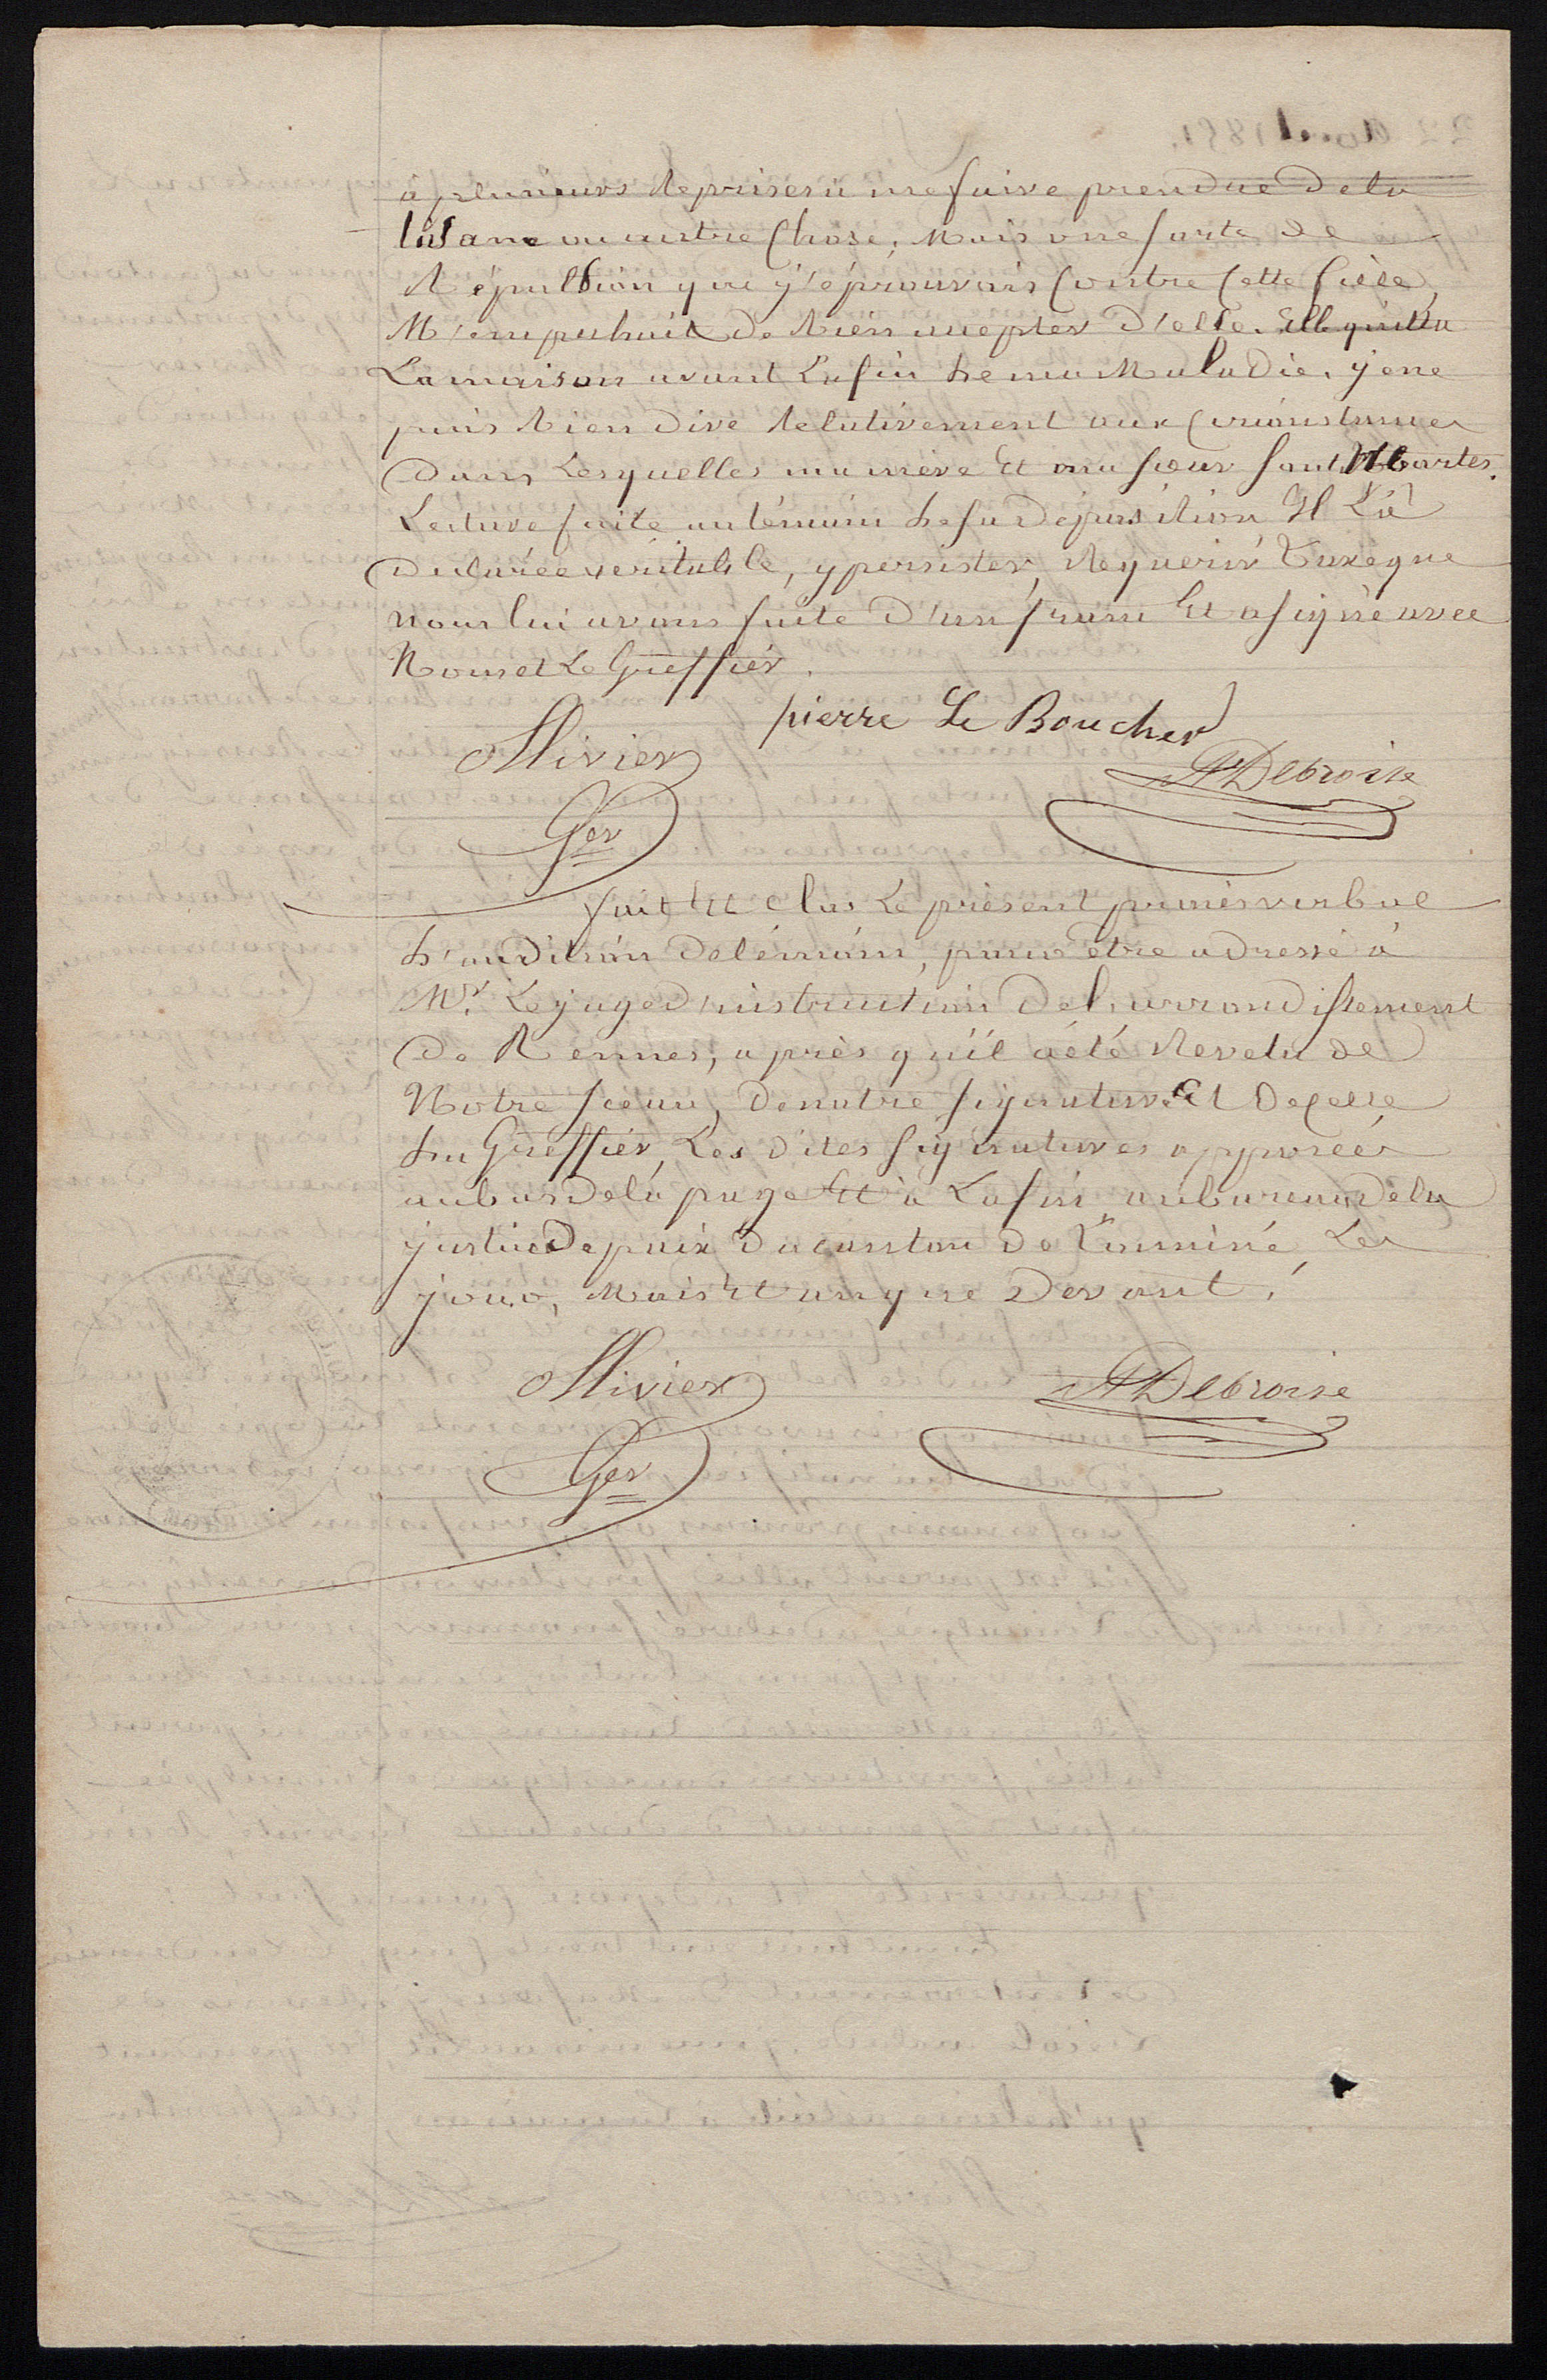 à plusieurs Reprises à me faire prendre de la
tisane ou autre Chose, Mais une sorte de
Répulsion que j'éprouvais Contre Cette fille,
M'empechait de Rien accepter d'elle. Elle quitta
La maison avant La fin de ma Maladie. je ne
puis Rien dire Relativement aux Circonstances
dans Lesquelles ma mère Et ma sœur sont Mortes.
Lecture faite au témoin de sa déposition Il L'a
declarée veritable, y persister, Requerir Taxe que
nous lui avons faite d'un franc Et a signé avec
Nous et Le Greffier.
pierre Le Boucher
Ollivier
Debroise
Ger
fait Et Clos Le présent procès verbal
d'audition de témoin, pour être adressé à
Mr. Le juge d'instruction de l'arrondissement
de Rennes, après qu'il a été Revetu de
Notre sceau, de notre signature Et de celle
du Greffier, Les dites signatures apposées
au bas de la page Et à La fin, au bureau de la
justice de paix du canton de Locminé Les
jour, Mois Et an que Devant.
Ollivier
Debroise
Ger